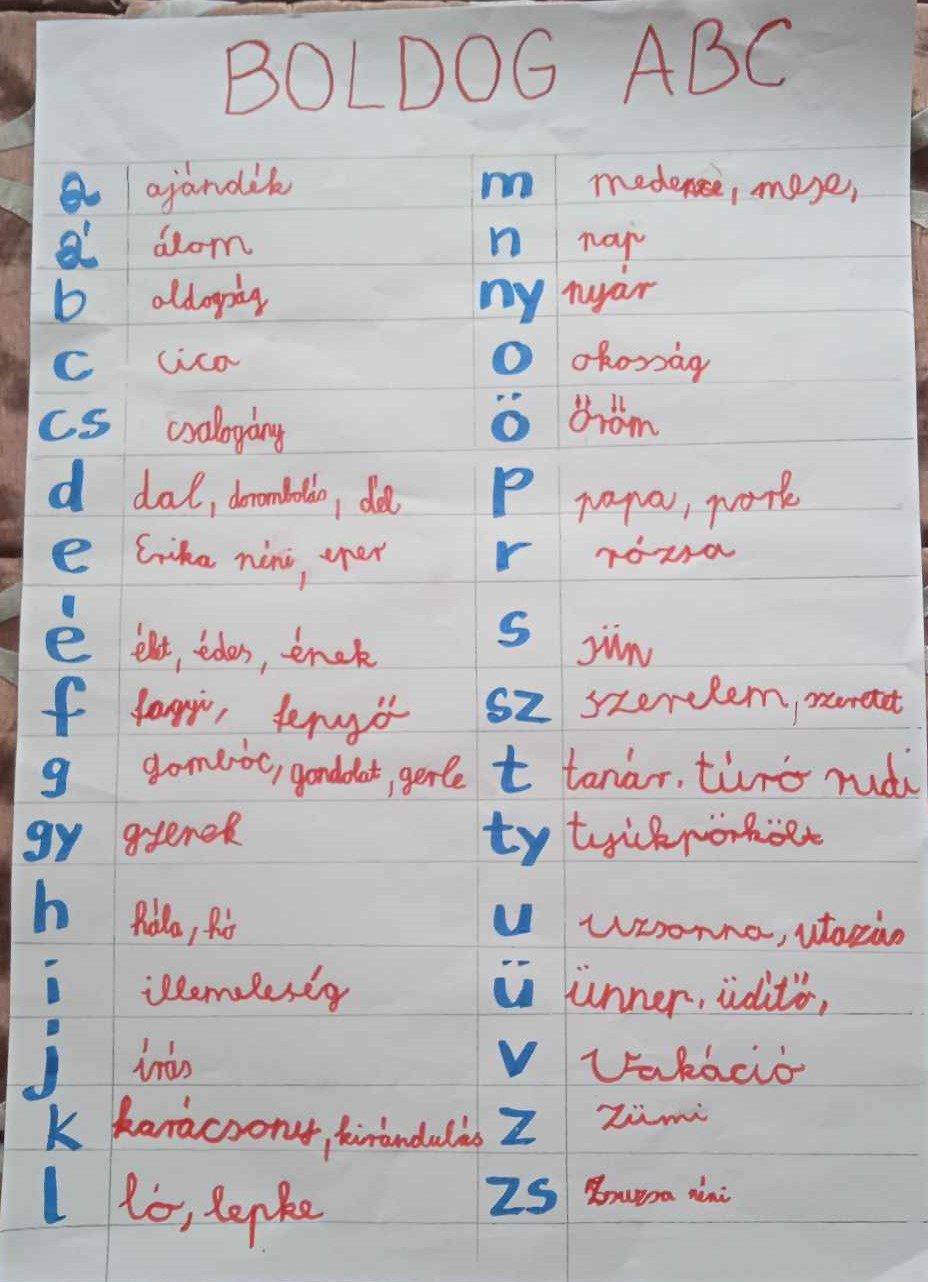 BOLDOG ABC
a ajándék
á álom
b oldogság
c cica
cs csalogány
d dal, dorombolás, dél
e Erika néni, eper
é élet, édes, ének
f fagyi, fenyő
g gombóc, gondolat, gerle
gy gyerek
h hála, hó
i illemeleség
j írás
k karácsony, kirándulás
l ló, lepke
m medence, mese,
n nap
ny nyár
o okosság
ö Öröm
p papa, park
r rózsa
s sün
sz szerelem, szeretet
t tanár, túró rudi
ty tyúkpörkölt
u uzsonna, utazás
ü ünnep, üdítő,
v Vakáció
z Zümi
zs Zsuzsa néni